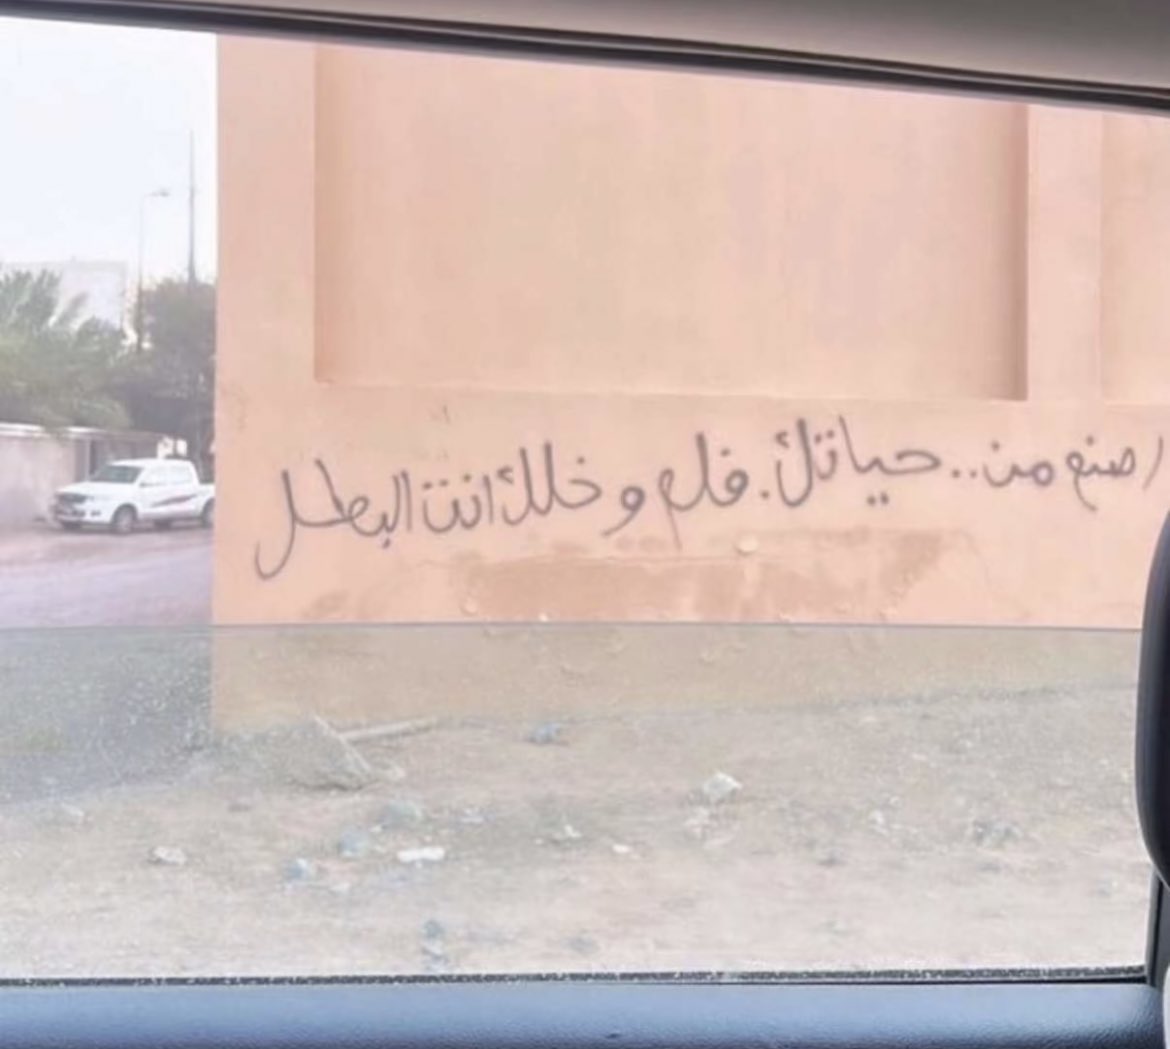 اصنع من.. حياتك. فلم و خلك انت البطل